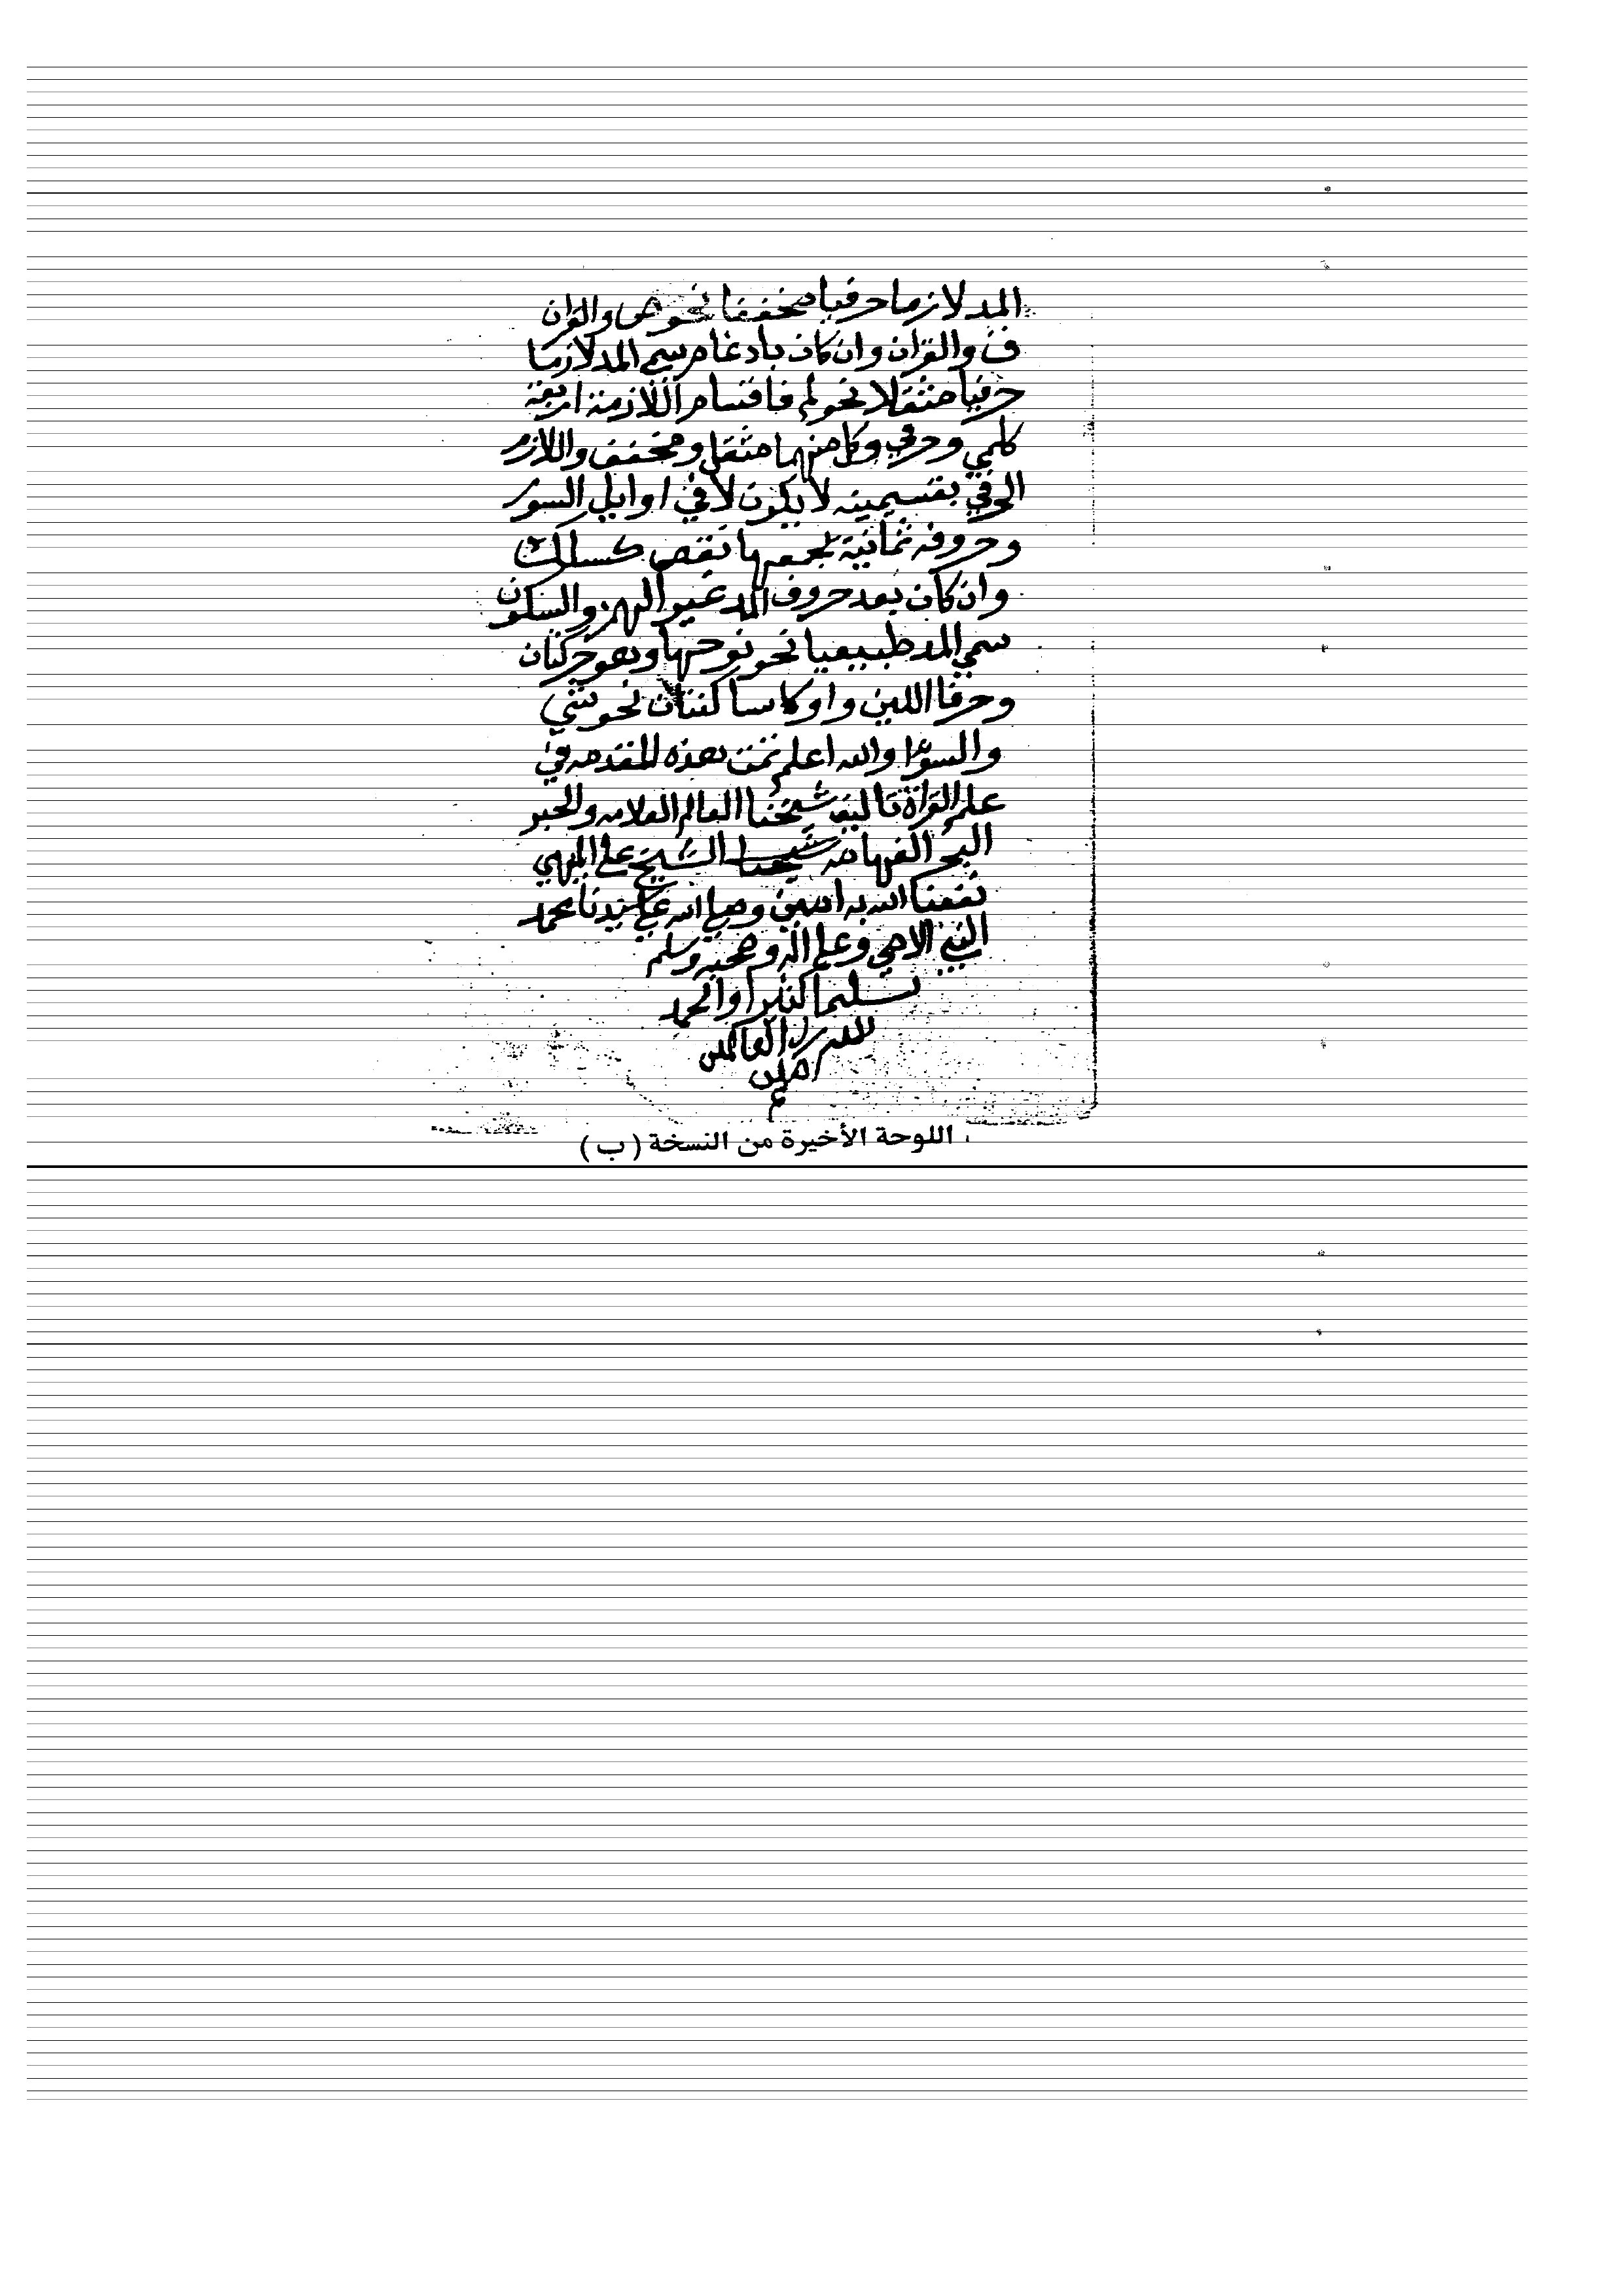 المد لازما حرفيا مخففا نحو ص والقران
ق والقران وان كان بادغام سمي المد لازما
حرفيا مثقلا نحو الم فاقسام اللازمة اربعة
كلمي وحرفي وكل منهما مثقل ومخفف واللازم
الحرفي بقسيميه لا يكون لا في اوايل السور
وحروفه ثمانية يجمعها نقص عسلكم
وان كان بعد حروف المد غير الهمز والسكون
سمي المد طبيعيا نحو نوحيها وهو حركتان
وحرفا اللين واو ويا ساكنتان نحو شي
والسوء والله اعلم تمت هذه المقدمه في
علم القراة تاليف شيخنا العالم العلامه والحبر
البحر الفهامه شيخنا الشيخ علي الميهي
نفعنا الله به امين وصلي الله علي سيدنا محمد
النبي الامي وعلي اله وصحبه وسلم
تسليما كثيرا والحمد
لله رب العالمين
امين
م
اللوحة الأخيرة من النسخة ( ب )